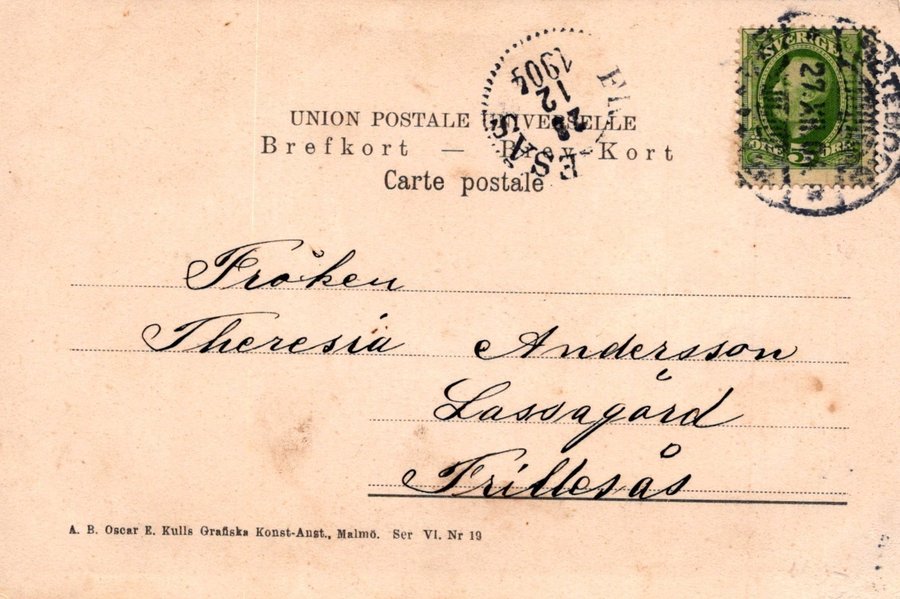 SVERIGE
27 XII
5 ÖRE
1904
12
28
ESÅS
UNION POSTALE UNIVERSELLE
Brefkort — Brev-Kort
Carte postale
Fröken
Theresia Andersson
Lassagård
Frillesås
A. B. Oscar E. Kulls Grafiska Konst-Anst., Malmö. Ser VI. Nr 19